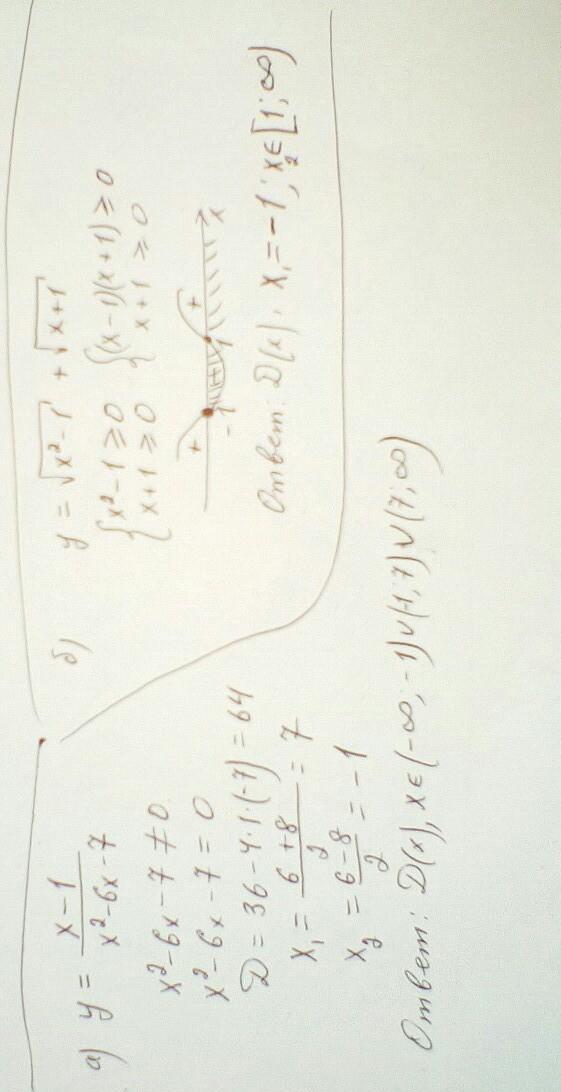 а) y = (x-1)/(x²-6x-7)
x²-6x-7≠0
x²-6x-7=0
D=36-4·1·(-7)=64
x₁ = (6+8)/2 = 7
x₂ = (6-8)/2 = -1
Ответ: D(x), x∈(-∞; -1)∪(-1; 7)∪(7; ∞)
б) y = √(x²-1) + √(x+1)
{x²-1≥0 {(x-1)(x+1)≥0
x+1≥0 x+1≥0
+ + x
-1 1
Ответ: D(x), x₁=-1; x₂∈[1; ∞)